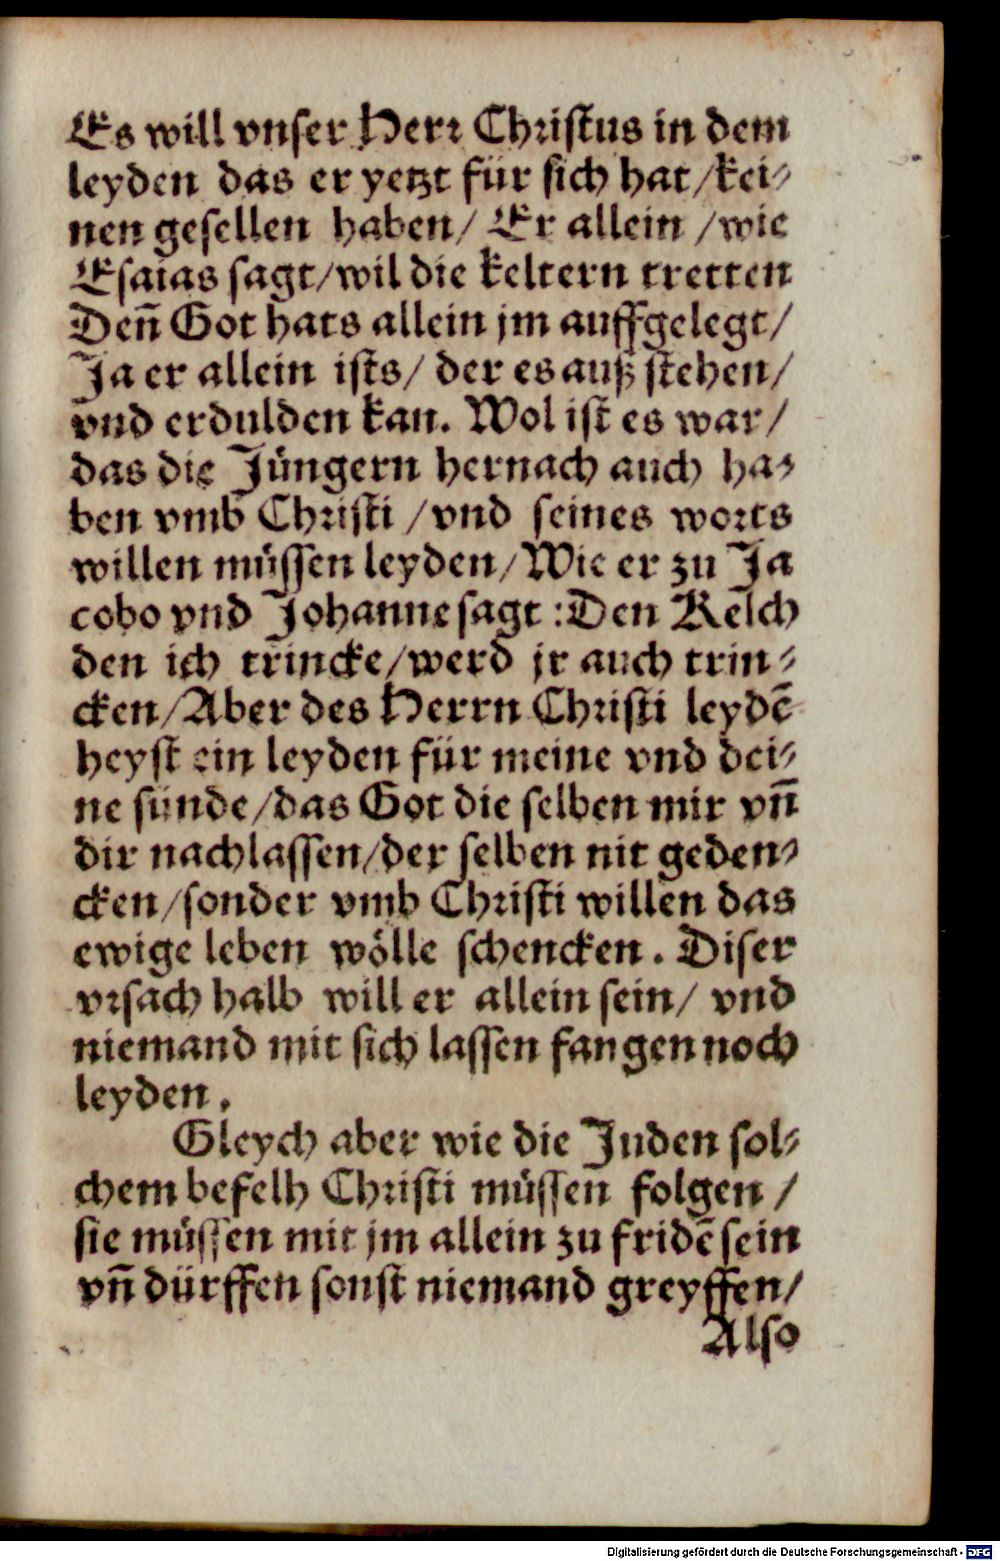 Es will vnser Herr Christus in dem
leyden das er yetzt für sich hat/kei-
nen gesellen haben/ Er allein /wie
Esaias sagt/wil die keltern tretten
Den̄ Got hats allein jm auffgelegt/
Ja er allein ists/ der es auß stehen/
vnd erdulden kan. Wol ist es war/
das die Jüngern hernach auch ha-
ben vmb Christi /vnd seines worts
willen müssen leyden/Wie er zu Ja
cobo vnd Johanne sagt :Den Kelch
den ich trincke/werd jr auch trin-
cken/Aber des Herrn Christi leydē
heyst ein leyden für meine vnd dei-
ne sünde/das Got die selben mir vn̄
dir nachlassen/der selben nit geden-
cken/sonder vmb Christi willen das
ewige leben wölle schencken. Diser
vrsach halb will er allein sein/ vnd
niemand mit sich lassen fangen noch
leyden.
Gleych aber wie die Juden sol-
chem befelh Christi müssen folgen /
sie müssen mit jm allein zu fridē sein
vn̄ dürffen sonst niemand greyffen/
Also
Digitalisierung gefördert durch die Deutsche Forschungsgemeinschaft - DFG